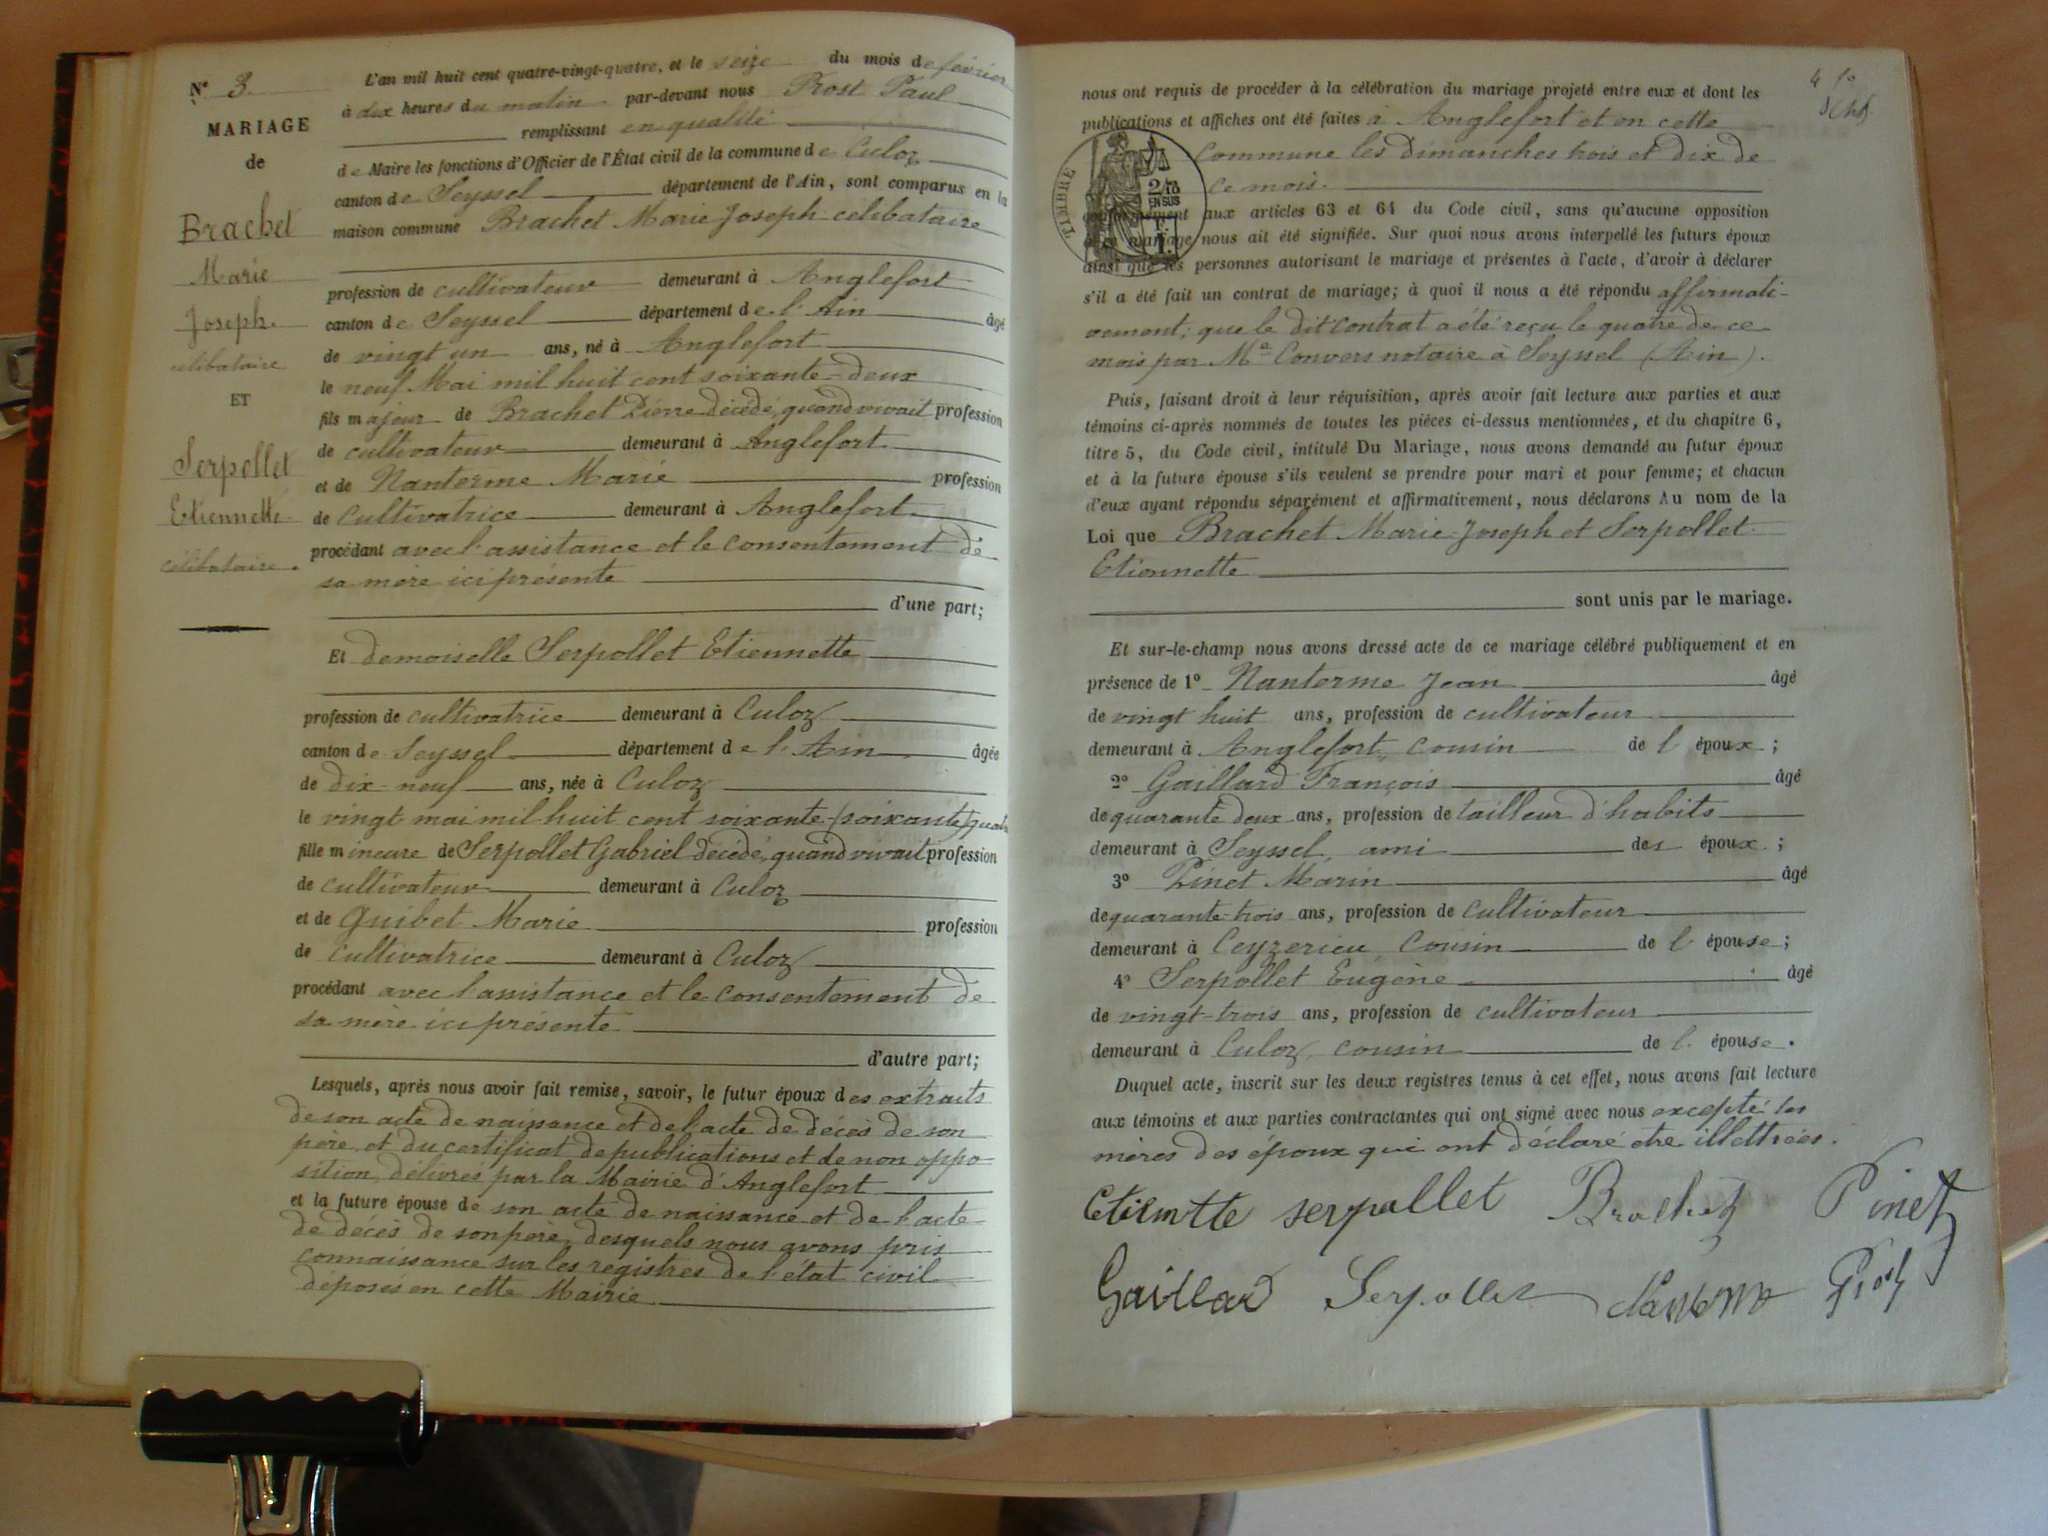 N° 3.
MARIAGE
de
Brachet
Marie
Joseph.
célibataire
ET
Serpollet
Etiennette
célibataire.
L'an mil huit cent quatre-vingt-quatre, et le seize du mois de février
à dix heures du matin par-devant nous Prost Paul
remplissant en qualité
de Maire les fonctions d'Officier de l'État civil de la commune de Culoz
canton de Seyssel département de l'Ain, sont comparus en la
maison commune Brachet Marie Joseph célibataire
profession de cultivateur demeurant à Anglefort
canton de Seyssel département de l'Ain âgé
de vingt un ans, né à Anglefort
le neuf Mai mil huit cent soixante-deux
fils majeur de Brachet Pierre décédé, quand vivait profession
de cultivateur demeurant à Anglefort
et de Nanterme Marie profession
de cultivatrice demeurant à Anglefort
procédant avec l'assistance et le consentement de
sa mère ici présente
d'une part;
Et demoiselle Serpollet Etiennette
profession de cultivatrice demeurant à Culoz
canton de Seyssel département de l'Ain âgée
de dix-neuf ans, née à Culoz
le vingt mai mil huit cent soixante (soixante) quatre
fille mineure de Serpollet Gabriel décédé, quand vivait profession
de cultivateur demeurant à Culoz
et de Guibet Marie profession
de cultivatrice demeurant à Culoz
procédant avec l'assistance et le consentement de
sa mère ici présente
d'autre part;
Lesquels, après nous avoir fait remise, savoir, le futur époux des extraits
de son acte de naissance et de l'acte de décès de son
père, et du certificat de publications et de non oppo-
sition, délivrés par la Mairie d'Anglefort
et la future épouse de son acte de naissance et de l'acte
de décès de son père, desquels nous avons pris
connaissance sur les registres de l'état civil
déposés en cette Mairie
4
nous ont requis de procéder à la célébration du mariage projeté entre eux et dont les
publications et affiches ont été faites à Anglefort et en cette
commune les dimanches trois et dix de
ce mois.
TIMBRE
2/10
EN SUS
conformément aux articles 63 et 64 du Code civil, sans qu'aucune opposition
à ce mariage nous ait été signifiée. Sur quoi nous avons interpellé les futurs époux
ainsi que les personnes autorisant le mariage et présentes à l'acte, d'avoir à déclarer
s'il a été fait un contrat de mariage; à quoi il nous a été répondu affirmati-
vement; que le dit contrat a été reçu le quatre de ce
mois par Me Convers notaire à Seyssel (Ain).
Puis, faisant droit à leur réquisition, après avoir fait lecture aux parties et aux
témoins ci-après nommés de toutes les pièces ci-dessus mentionnées, et du chapitre 6,
titre 5, du Code civil, intitulé Du Mariage, nous avons demandé au futur époux
et à la future épouse s'ils veulent se prendre pour mari et pour femme; et chacun
d'eux ayant répondu séparément et affirmativement, nous déclarons Au nom de la
Loi que Brachet Marie-Joseph et Serpollet
Etiennette
sont unis par le mariage.
Et sur-le-champ nous avons dressé acte de ce mariage célébré publiquement et en
présence de 1° Nanterme Jean âgé
de vingt huit ans, profession de cultivateur
demeurant à Anglefort, cousin de l'époux;
2° Gaillard François âgé
de quarante deux ans, profession de tailleur d'habits
demeurant à Seyssel, ami des époux;
3° Pinet Marin âgé
de quarante-trois ans, profession de cultivateur
demeurant à Ceyzerieu, Cousin de l'épouse;
4° Serpollet Eugène âgé
de vingt-trois ans, profession de cultivateur
demeurant à Culoz, cousin de l'épouse.
Duquel acte, inscrit sur les deux registres tenus à cet effet, nous avons fait lecture
aux témoins et aux parties contractantes qui ont signé avec nous excepté les
mères des époux qui ont déclaré être illettrées.
Etiennette serpollet Brachet Pinet
Gaillard Serpollet Nanterme Prost